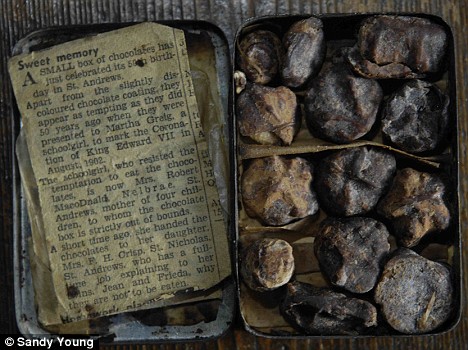 Sweet memory
A SMALL box of chocolates has
just celebrated its 50th birth-
day in St. Andrews.
Apart from the slightly dis-
coloured chocolate coating, they
appear as tempting as they did
50 years ago when they were
presented to Martha Greig, a
schoolgirl, to mark the Corona-
tion of King Edward VII in
August, 1902.
The schoolgirl, who resisted the
temptation to eat the choco-
lates, is now Mrs. Robert
MacDonald, Melbrae, St.
Andrews, mother of four chil-
dren, to whom the chocolate
box is strictly out of bounds.
A short time ago, she handed the
chocolates to her daughter,
Mrs. P. H. Crisp, St. Nicholas,
St. Andrews, who has a full-
time job explaining to her
twins, Jean and Frieda, why
they are not to be eaten.
© Sandy Young